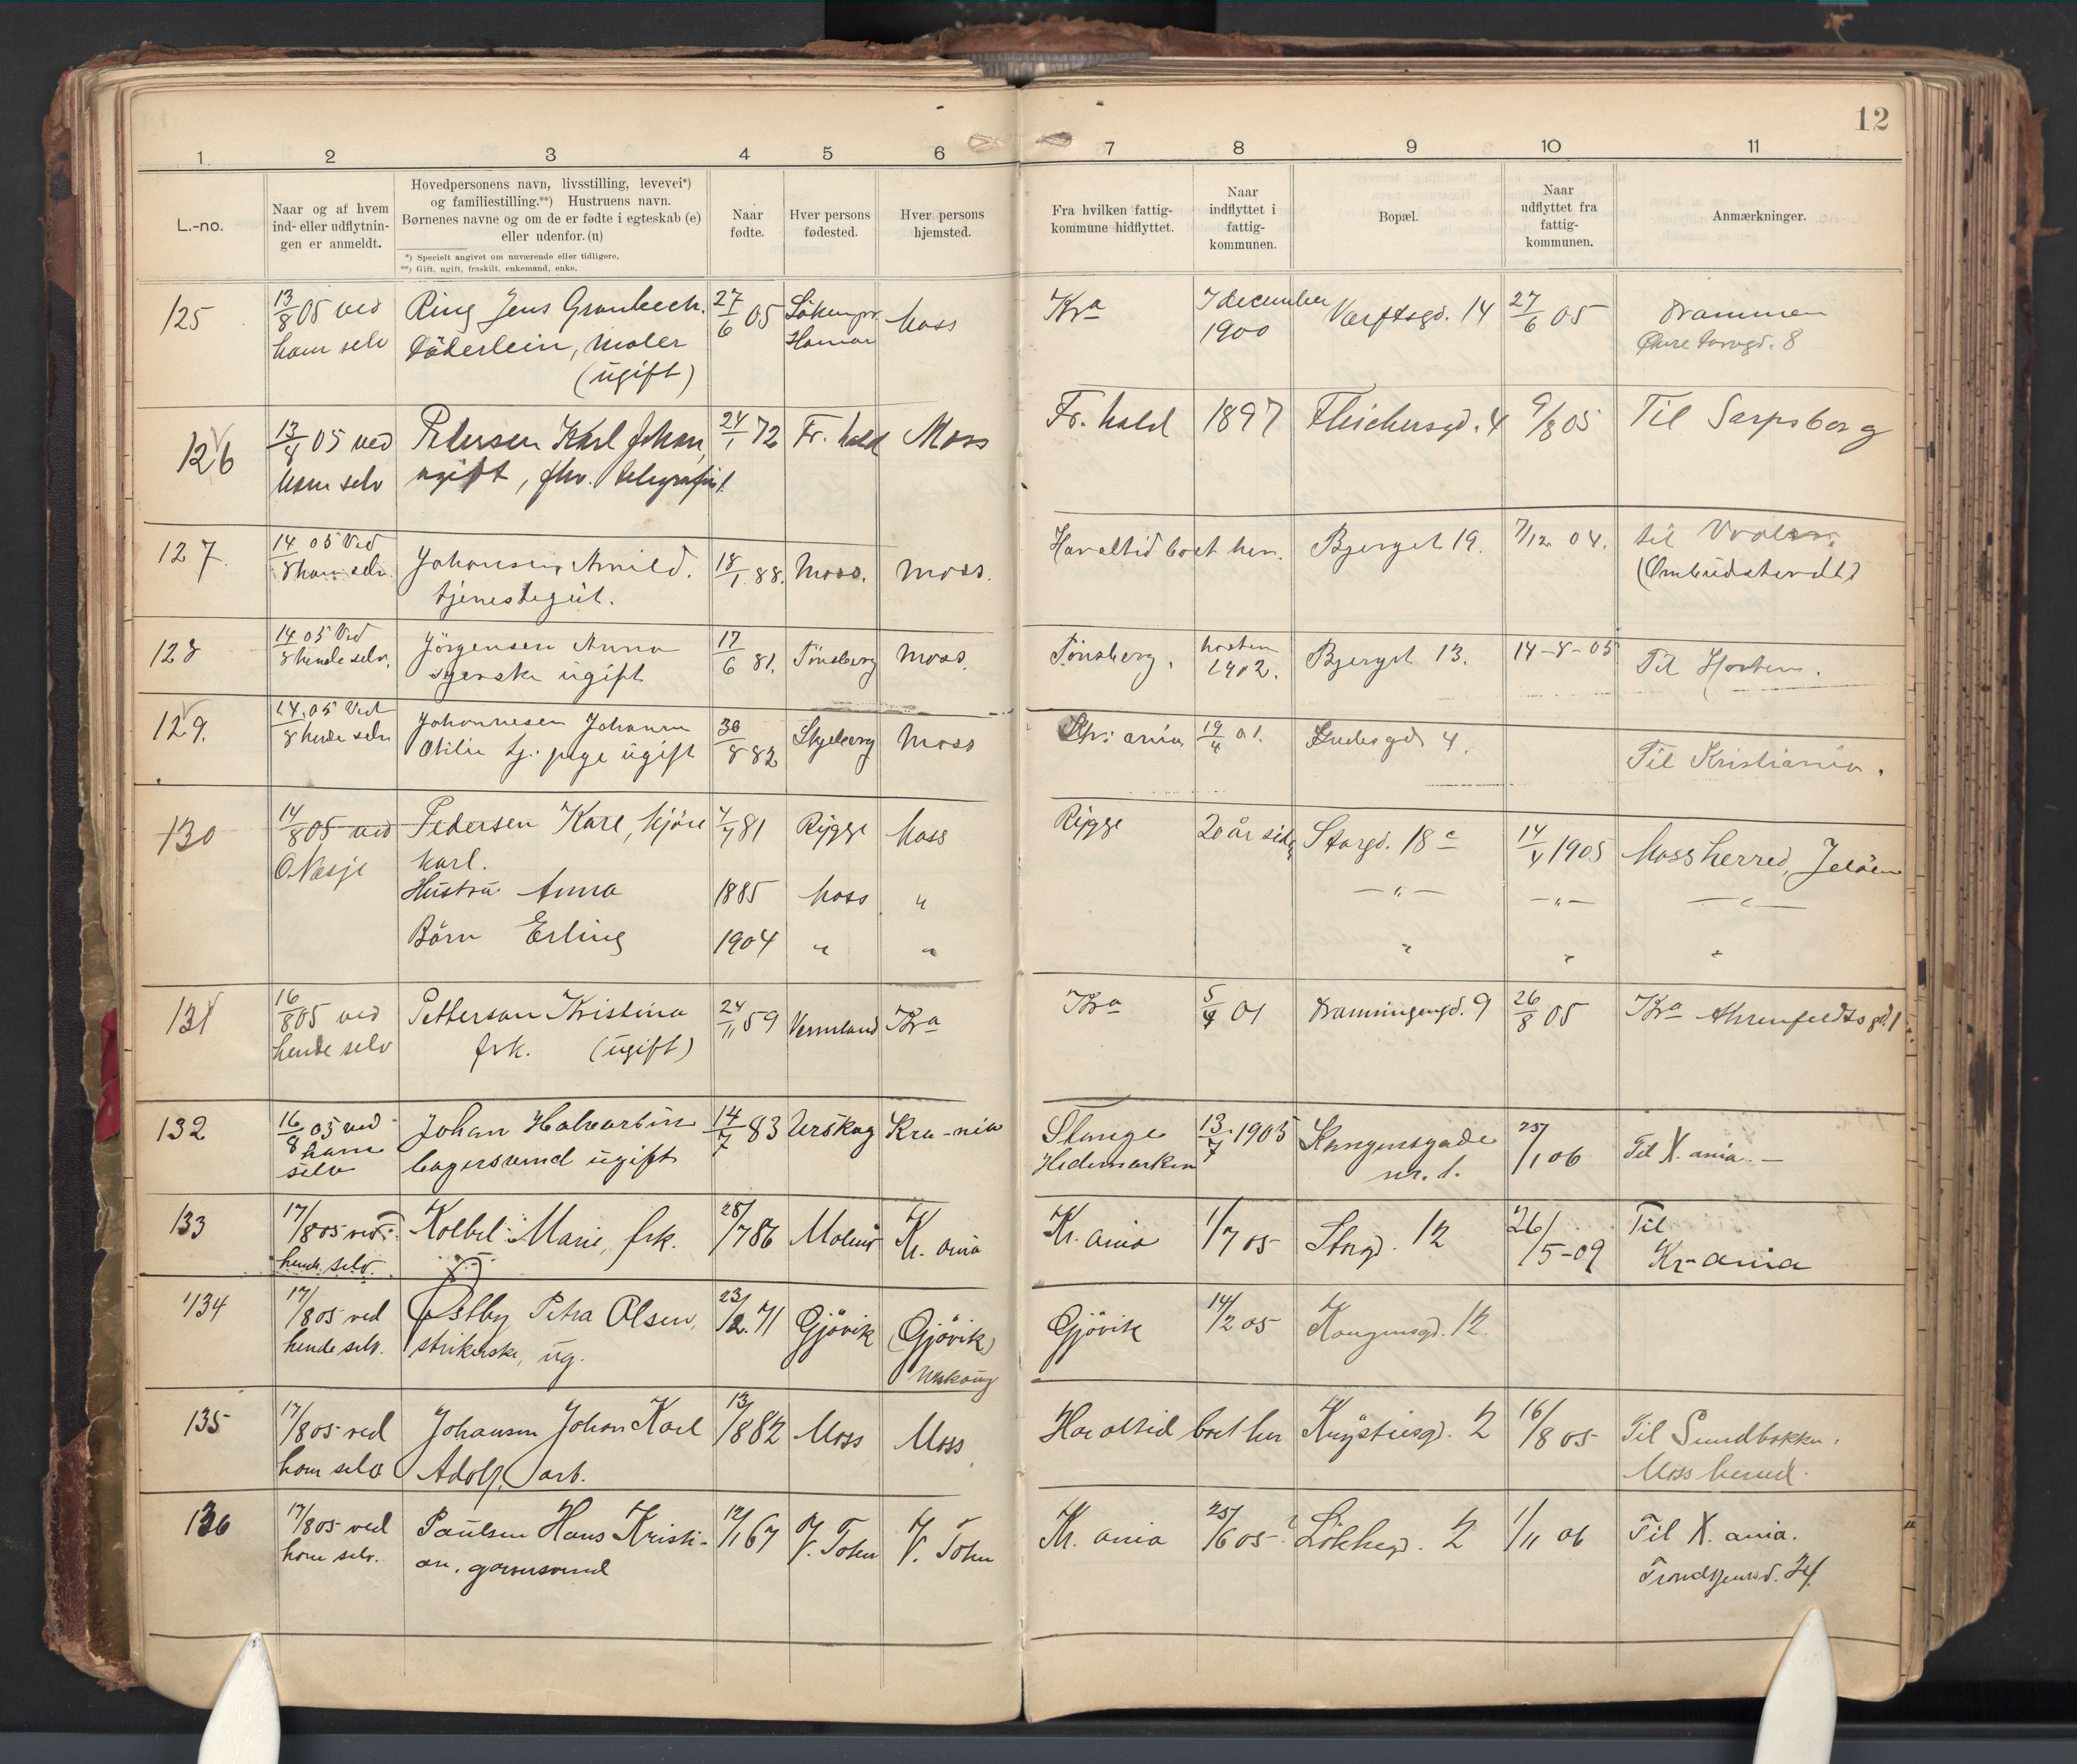 12
1. 2 3 4 5 6 7 8 9 10 11
L.-no.
Naar og af hvem
ind- eller udflytnin-
gen er anmeldt.
Hovedpersonens navn, livsstilling, levevei*)
og familiestilling.**) Hustruens navn.
Børnenes navne og om de er fødte i egteskab (e)
eller udenfor. (u)
*) Specielt angivet om nuværende eller tidligere.
**) Gift, ugift, fraskilt, enkemand, enke.
Naar
fødte.
Hver persons
fødested.
Hver persons
hjemsted.
Fra hvilken fattig-
kommune hidflyttet.
Naar
indflyttet i
fattig-
kommunen.
Bopæl.
Naar
udflyttet fra
fattig-
kommunen.
Anmærkninger.
125 13/8 05 ved Ring Jens Grønbech 27/6 05 Moss Kra 7 december Værftsgd. 14 27/6 05 Drammen
ham selv Døderlein, maler Hamar 1900 8
(ugift)
126 13/8 05 ved Petersen Karl Johan, 24/1 72 Fr. hald Moss Fr. hald 1897 4 9/8 05 Til Sarpsborg
ham selv ugift, fhv. telegrafist
127 14/8 05 Ved Johansen Arnild. 18/1. 88. Moss. Moss. Har altid boet her. Bjerget 19. 7/12. 04. til
ham selv tjenestegut.
128 14/8 05 Ved Jörgensen Anna 17/6 81. Tönsberg Moss. Tönsberg. høsten Bjerget 13. 14-8-05 Til Horten.
hende selv. syerske ugift 1902.
129. 14/8 05 Ved Johannesen Johanne 30/8 82 Skjeberg Moss Kr: ania 19/4 01. 4. Til Kristiania.
hende selv Otilie tj. pige ugift
130 14/8 05 ved Pedersen Karl, kjöre 7/7 81 Rygge Moss Rygge 20 år siden Storgd. 18 c 14/4 1905 Moss herred, Jelöen
O. Næsje karl.
Hustru Anna 1885 Moss " — " — — " — — " —
Børn Erling 1904 " " " " "
131 16/8 05 ved Petterson Kristina 24/11 59 Vermland Kra Kra 5/4 01 Dronningengd. 9 26/8 05 Kra Ahrenfeldtsgd. 1
hende selv frk. (ugift)
132 16/8 05 ved Johan Halvorsen 14/7 83 Urskog Kra-nia Stange 13/7. 1905 Kongensgade 25/1 06 Til X. ania. —
ham bagersvend ugift Hedemarken nr. 1.
selv
133 17/8 05 ved Kolbel Marie, frk. 28/7 86 Malmö Kr. ania Kr. ania 1/7 05 Storgd. 12 26/5-09 Til
hende selv. Kr-ania
134 17/8 05 ved Østby Petra Olsen, 23/2. 71 Gjövik (Gjövik) Gjövik 14/2 05 Kongensgd. 12.
hende selv. strikerske, ug.
135 17/8 05 ved Johansen Johan Karl 13/8 82 Moss Moss Har altid boet her 2 16/8 05 Til Sundbakken.
ham selv Adolf, arb. Moss herred.
136 17/8 05 ved Paulsen Hans Kristi- 12/1 67 V. Toten V. Toten Kr. ania 25/6 05 Lökkegd. 2 1/11 06 Til X. ania.
ham selv. an. garversvend Trondhjemsv. 24